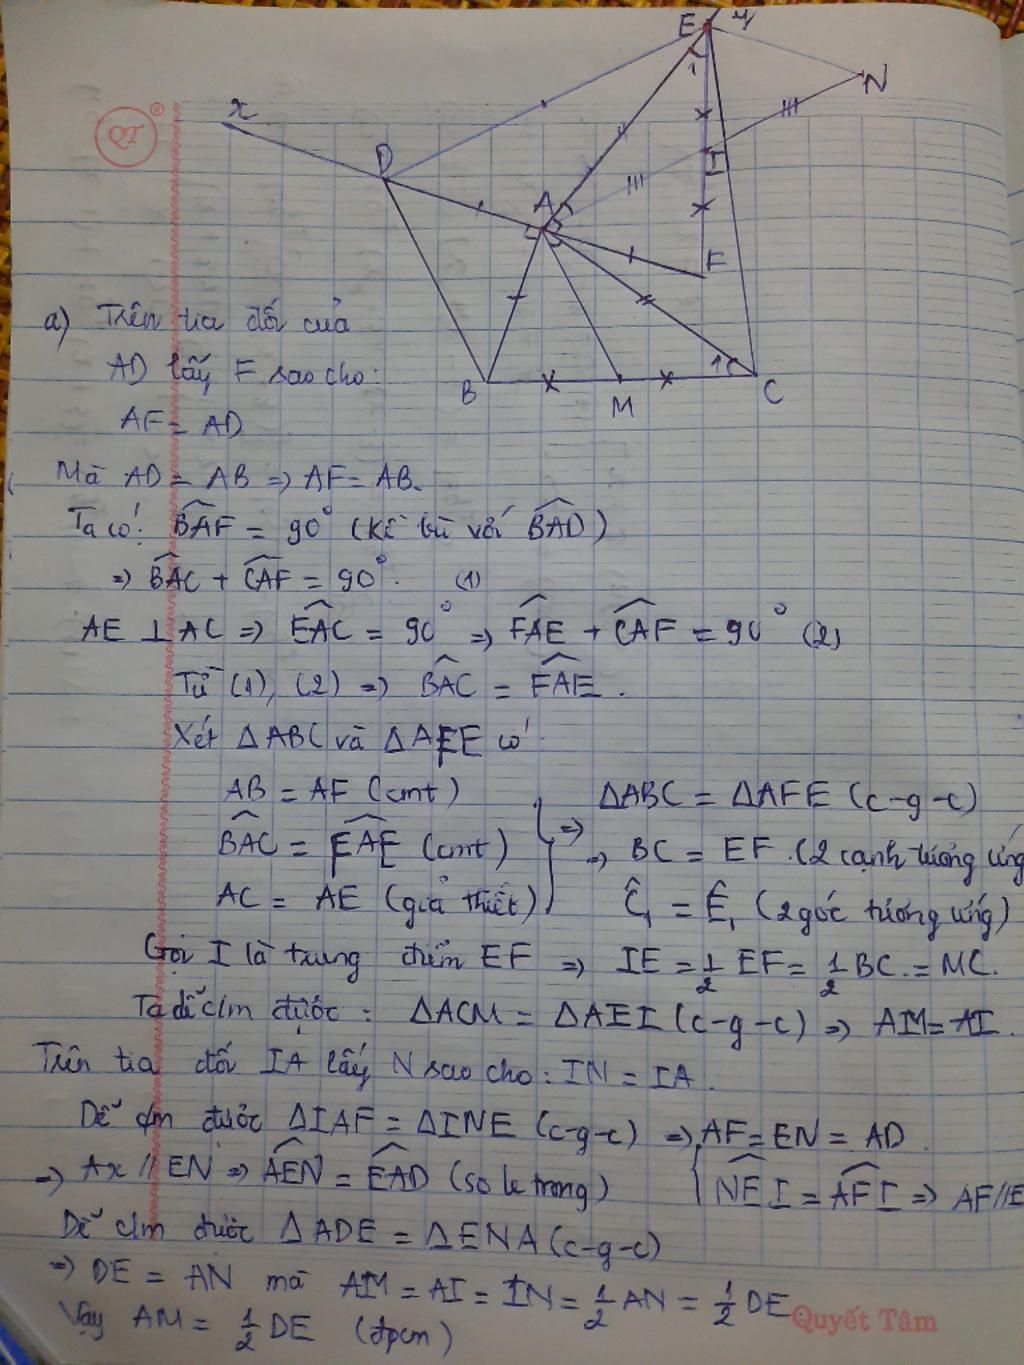 E y
N
1
x
QT ®
D
I
A
F
a) Trên tia đối của
AD lấy F sao cho:
1
B
M
C
AF = AD
Mà AD = AB => AF = AB.
Ta có: BAF = 90° (kề bù với BAD)
=> BAC + CAF = 90°. (1)
AE ⊥ AC => EAC = 90° => FAE + CAF = 90° (2)
Từ (1), (2) => BAC = FAE.
Xét ΔABC và ΔAFE có
AB = AF (cmt)
BAC = FAE (cmt)
AC = AE (giả thiết)
=> ΔABC = ΔAFE (c-g-c)
=> BC = EF (2 cạnh tương ứng
Ĉ₁ = Ê₁ (2 góc tương ứng)
Gọi I là trung điểm EF => IE = 1/2 EF = 1/2 BC = MC.
Ta dễ c/m được: ΔACM = ΔAEI (c-g-c) => AM = AI.
Trên tia đối IA lấy N sao cho: IN = IA.
Dễ c/m được ΔIAF = ΔINE (c-g-c) => AF = EN = AD.
NEI = AFI => AF//E
=> Ax // EN => AEN = EAD (so le trong)
Dễ c/m được ΔADE = ΔENA (c-g-c)
=> DE = AN mà AM = AI = IN = 1/2 AN = 1/2 DE
Vậy AM = 1/2 DE (đpcm)
Quyết Tâm